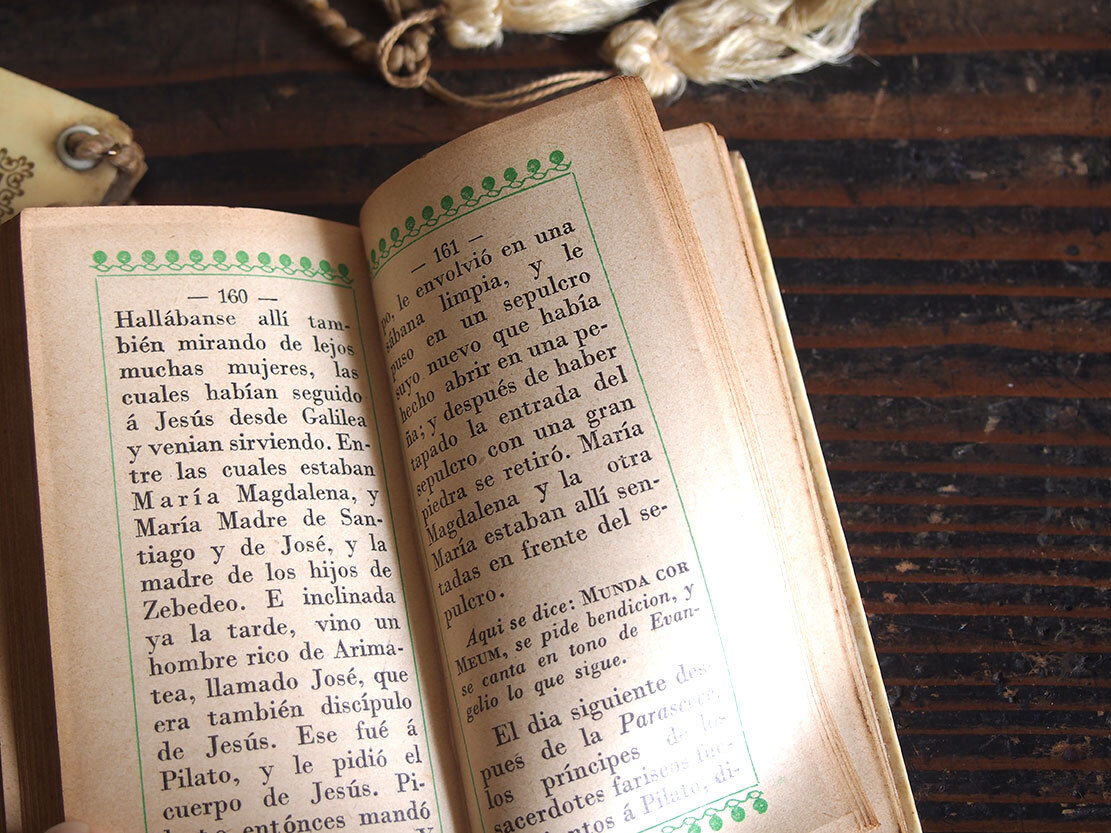 — 160 —
Hallábanse allí tam-
bién mirando de lejos
muchas mujeres, las
cuales habían seguido
á Jesús desde Galilea
y venian sirviendo. En-
tre las cuales estaban
María Magdalena, y
María Madre de San-
tiago y de José, y la
madre de los hijos de
Zebedeo. E inclinada
ya la tarde, vino un
hombre rico de Arimá-
tea, llamado José, que
era también discípulo
de Jesús. Ese fué á
Pilato, y le pidió el
cuerpo de Jesús. Pi-
entónces mandó
— 161 —
po, le envolvió en una
sábana limpia, y le
puso en un sepulcro
suyo nuevo que había
hecho abrir en una pe-
ña; y después de haber
tapado la entrada del
sepulcro con una gran
piedra se retiró. María
Magdalena y la otra
María estaban allí sen-
tadas en frente del se-
pulcro.
Aqui se dice: MUNDA COR
MEUM, se pide bendicion, y
se canta en tono de Evan-
gelio lo que sigue.
El dia siguiente des-
pues de la Parasceve,
los príncipes de los
sacerdotes fariseos fue-
á Pilato, di-